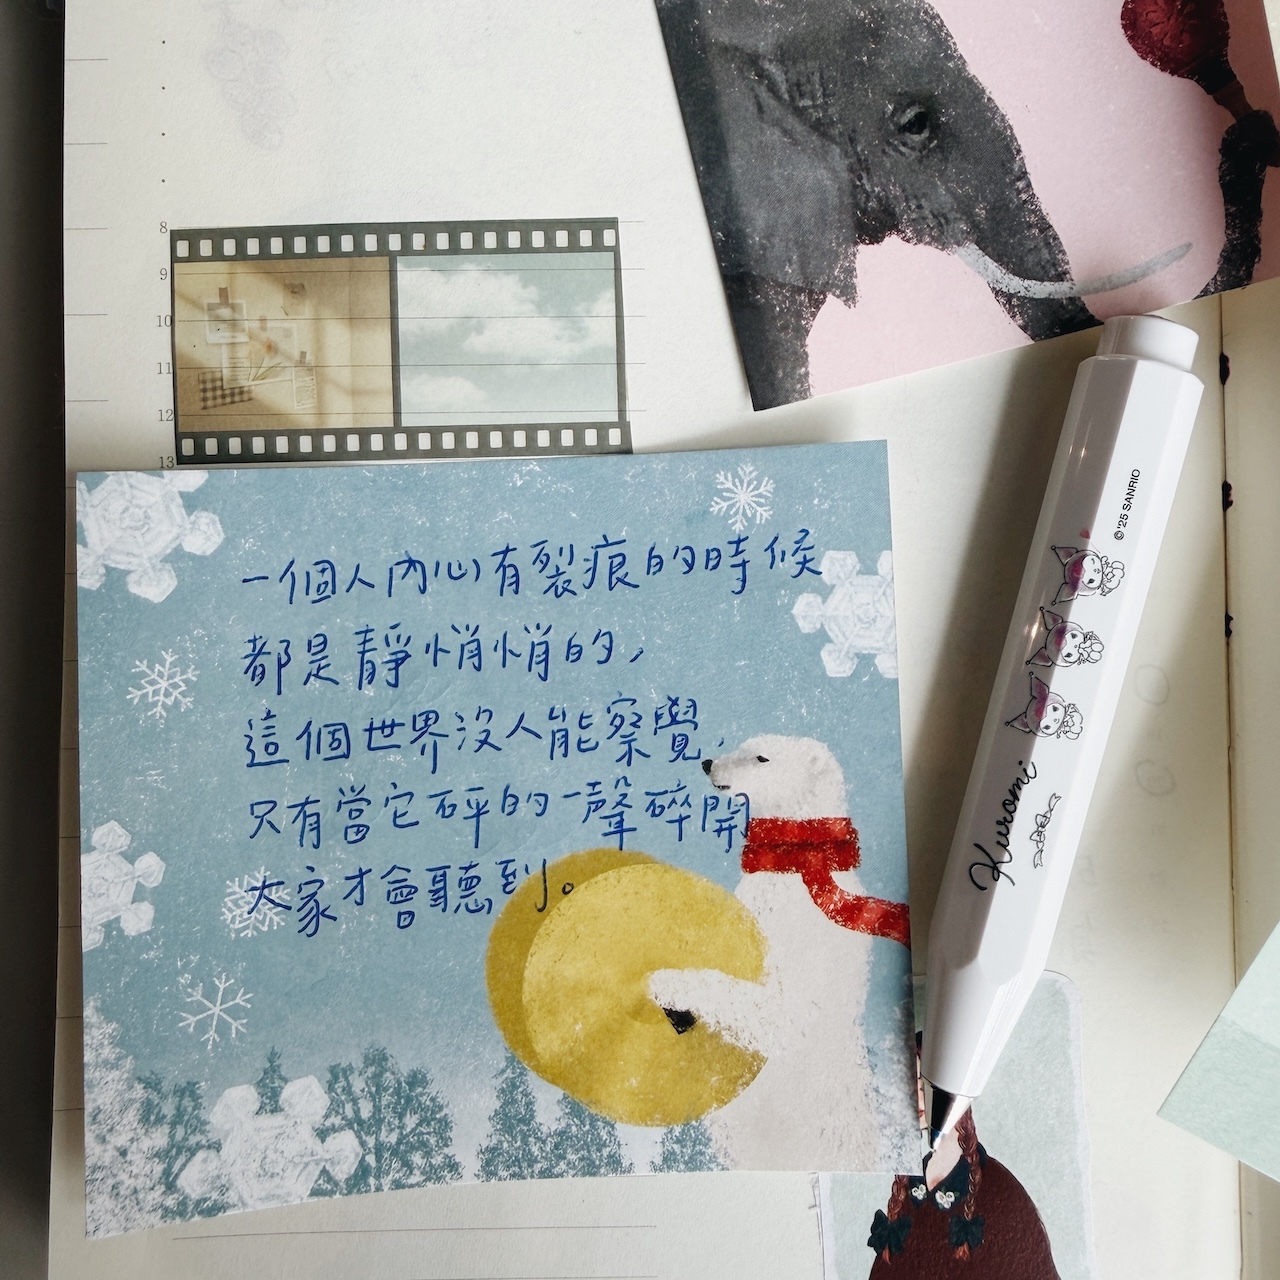 8
9
10
11
12
13
一個人內心有裂痕的時候
都是靜悄悄的,
這個世界沒人能察覺,
只有當它砰的一聲碎開
大家才會聽到。
©'25 SANRIO
Kuromi